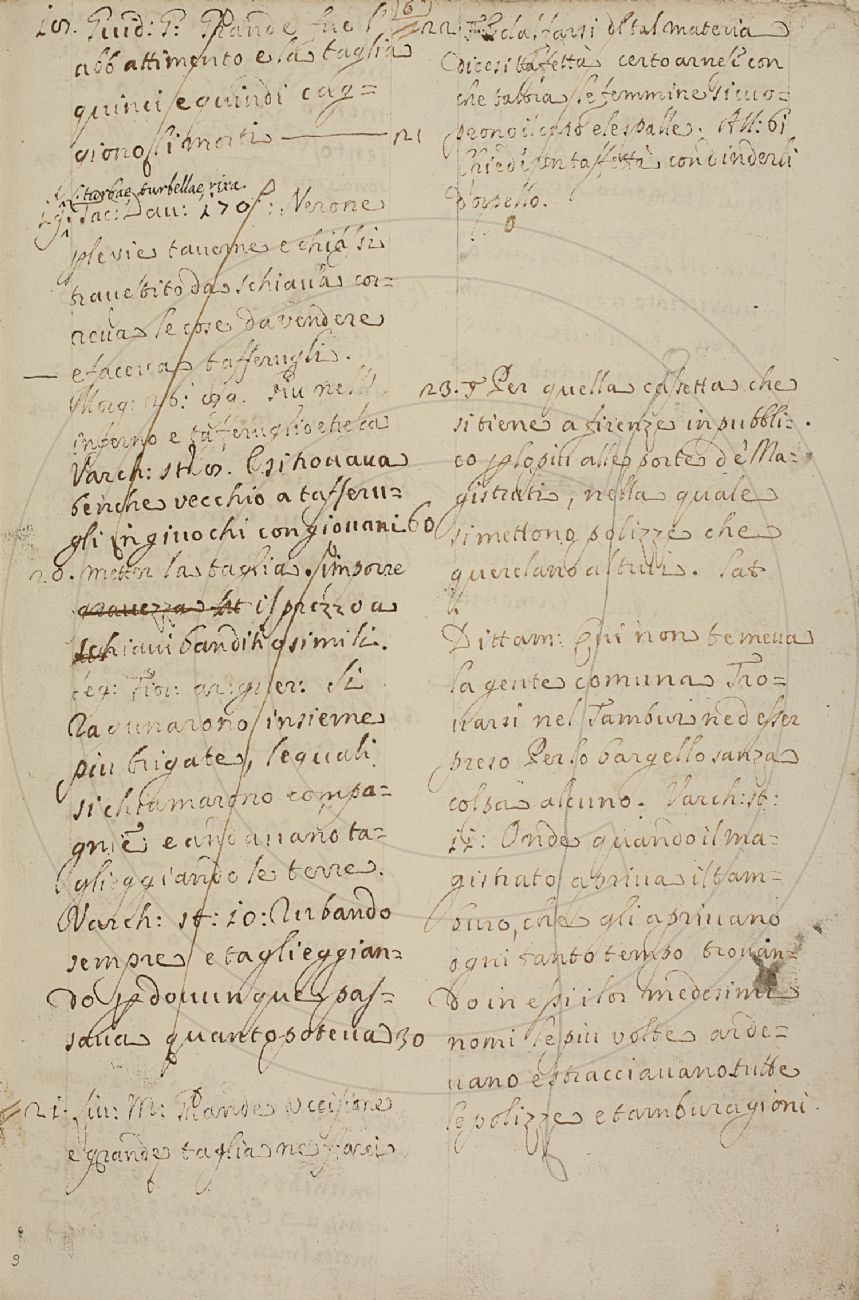 18. Guid: G: Grande fue l'
abbattimento e la taglia
quinci e quindi cag=
giono li morti — 21
turbae, turbellae, rixa.
19. Tac: Dav: 170: Nerone
per le vie taverne e chiassi
travestito da schiavo cor=
reva le cose da vendere
e faceva tafferugli.
Morg: 26: 89. Fu nell'
inferno e tafferuglio e
Varch: st: 8. Esi trovava
benche vecchio a tafferu=
gli in giuochi con giovani 60
20. metter la taglia. imporre
gravezza il prezzo a
schiavi banditi o simili.
Ser: Gior:
Ragunarono insieme
piu brigate, le quali
si chiamarono compa=
gnie e andavano ta=
glieggiando le terre.
Varch: st: 10: Rubando
sempre e taglieggian=
do per dovunque pas=
sava quanto poteva 30
21. Liv: M: Grande uccisione
e grande taglia ne farei
(6)
22. di tal materia
dicesi taffettà certo arnese con
che le femmine si cuo=
prono il capo e le spalle. All: 61
Chiedi un taffettà
d'orpello.
23. Per quella cassetta che
si tiene a firenze in pubbli=
co per lo piu alle porte de Ma=
gistrati, nella quale
si mettono polizze che
querelano altrui. Lat
Dittam: Qui non temeva
la gente comuna Tro=
varsi nel Tamburi ned esser
preso Per lo bargello sanza
colpa alcuno. Varch: st:
11: Onde quando il ma=
gistrato apriva il tam=
buro, che gli aprivano
ogni tanto tempo trovan=
do in essi i lor medesimi
nomi le piu volte arde=
vano e stracciavano tutte
le polizze e tamburagioni.
9